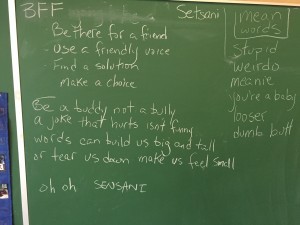 BFF
Be there for a friend
- Use a friendly voice
- Find a solution
make a choice
Be a buddy not a bully
a joke that hurts isnt funny
words can build us big and tall
or tear us down make us feel small
oh oh SENSANI
Setsani
mean
words
Stupid
weirdo
meanie
you're a baby
looser
dumb butt